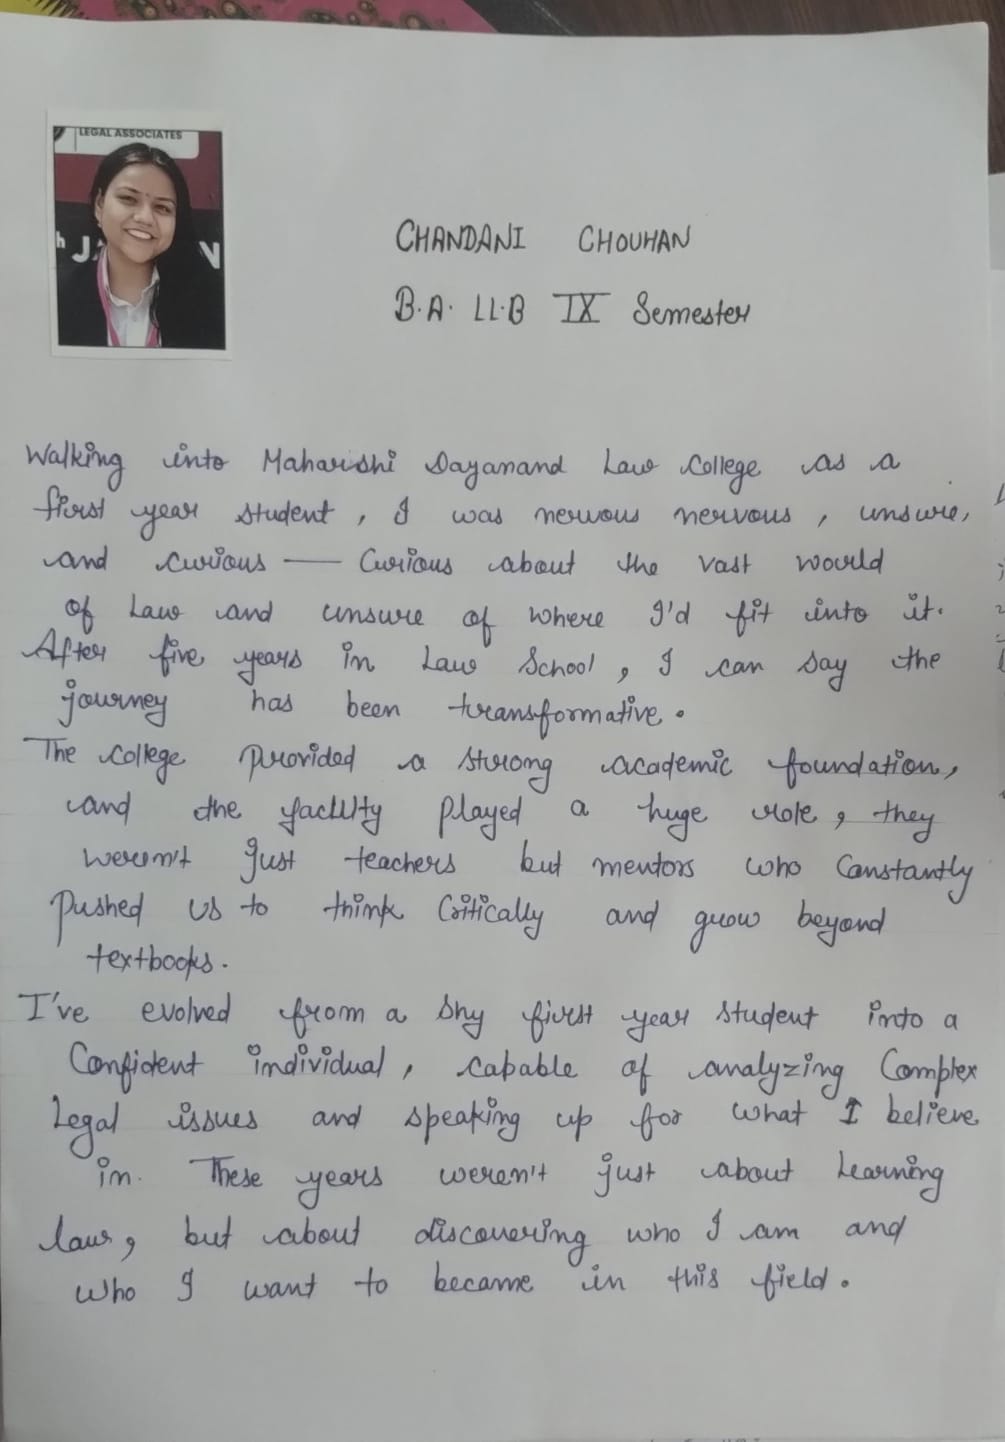 LEGAL ASSOCIATES
CHANDANI CHOUHAN
B.A. LL.B IX Semester
Walking into Maharishi Dayanand Law College as a
first year student, I was nervous nervous, unsure,
and curious — Curious about the vast would
of Law and unsure of where I'd fit into it.
After five years in Law School, I can say the
journey has been transformative.
The college provided a strong academic foundation,
and the faculty played a huge role, they
weren't just teachers but mentors who Constantly
Pushed us to think Critically and grow beyond
textbooks.
I've evolved from a shy first year student into a
Confident individual, capable of analyzing Complex
Legal issues and speaking up for what I believe
in. These years weren't just about learning
law, but about discovering who I am and
who I want to became in this field.